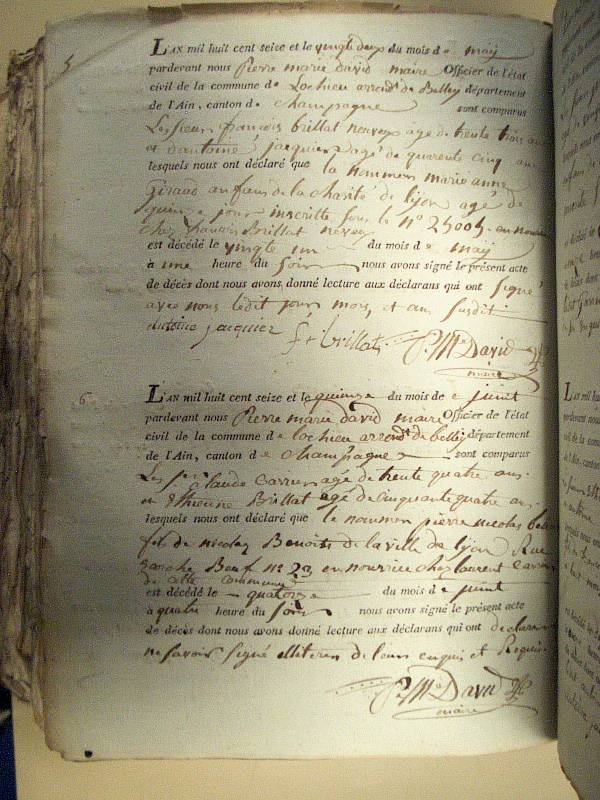 5
L'AN mil huit cent seize et le vingt deux du mois de may
pardevant nous Pierre marie david maire Officier de l'état
civil de la commune de Lochieu arrendt de Belley département
de l'Ain, canton de Champagne sont comparus
Les sieurs françois brillat neveux agé de trente trois ans
et antoine jacquier agé de quarente cinq ans
lesquels nous ont déclaré que la nommée marie anne
Giraud enfans de la charité de lyon agé de
quinze jours inscritte sous le n° 25005 en nourrice
chez francois Brillat neveu
est décédé le vingte un du mois de may
à une heure du soir nous avons signé le présent acte
de décès dont nous avons donné lecture aux déclarans qui ont signé
avec nous ledit jour mois et an susdit
antoine jacquier fr brillat P. Mie David
maire
6
L'AN mil huit cent seize et le quinze du mois de juint
pardevant nous Pierre marie david maire Officier de l'état
civil de la commune de lochieu arrendt de belley département
de l'Ain, canton de Champagne sont comparus
Les srs claude Carrier agé de trente quatre ans
et Ethienne Brillat agé de cinquante quatre ans
lesquels nous ont déclaré que le nommé pierre nicolas
fils de nicolas Benoits de la ville de lyon Rue
Beuf n° 23 en nourrice chez laurent
de cette commune
est décédé le quatorze du mois de juint
à quatre heure du soir nous avons signé le présent acte
de décès dont nous avons donné lecture aux déclarans qui ont declaré
ne savoir signé de leur enquis et Requis
P. Mie David
maire